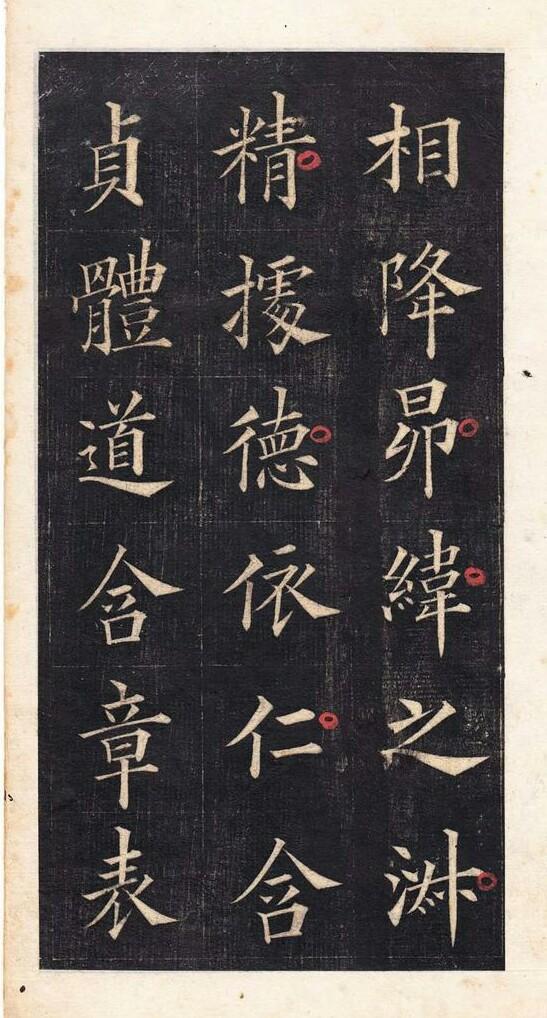 相降昴緯之淑
精據德依仁含
貞體道含章表